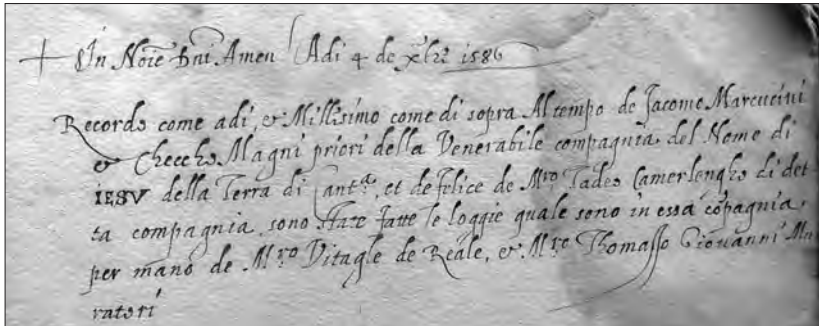 In Noie Dni Amen Adi 4 de xbre 1586
Recordo come adi, et Millisimo come di sopra Al tempo de Jacome Marcucini
et Checcho Magni priori della Venerabile compagnia del Nome di
IESV della Terra di Cantª, et de felice de Mro Tadeo Camerlengho di det-
ta compagnia, sono state fatte le loggie quale sono in essa cōpagnia,
per mano de Mro Vitagle de Reale, et Mro Thomasso Giovanni Mu
ratori